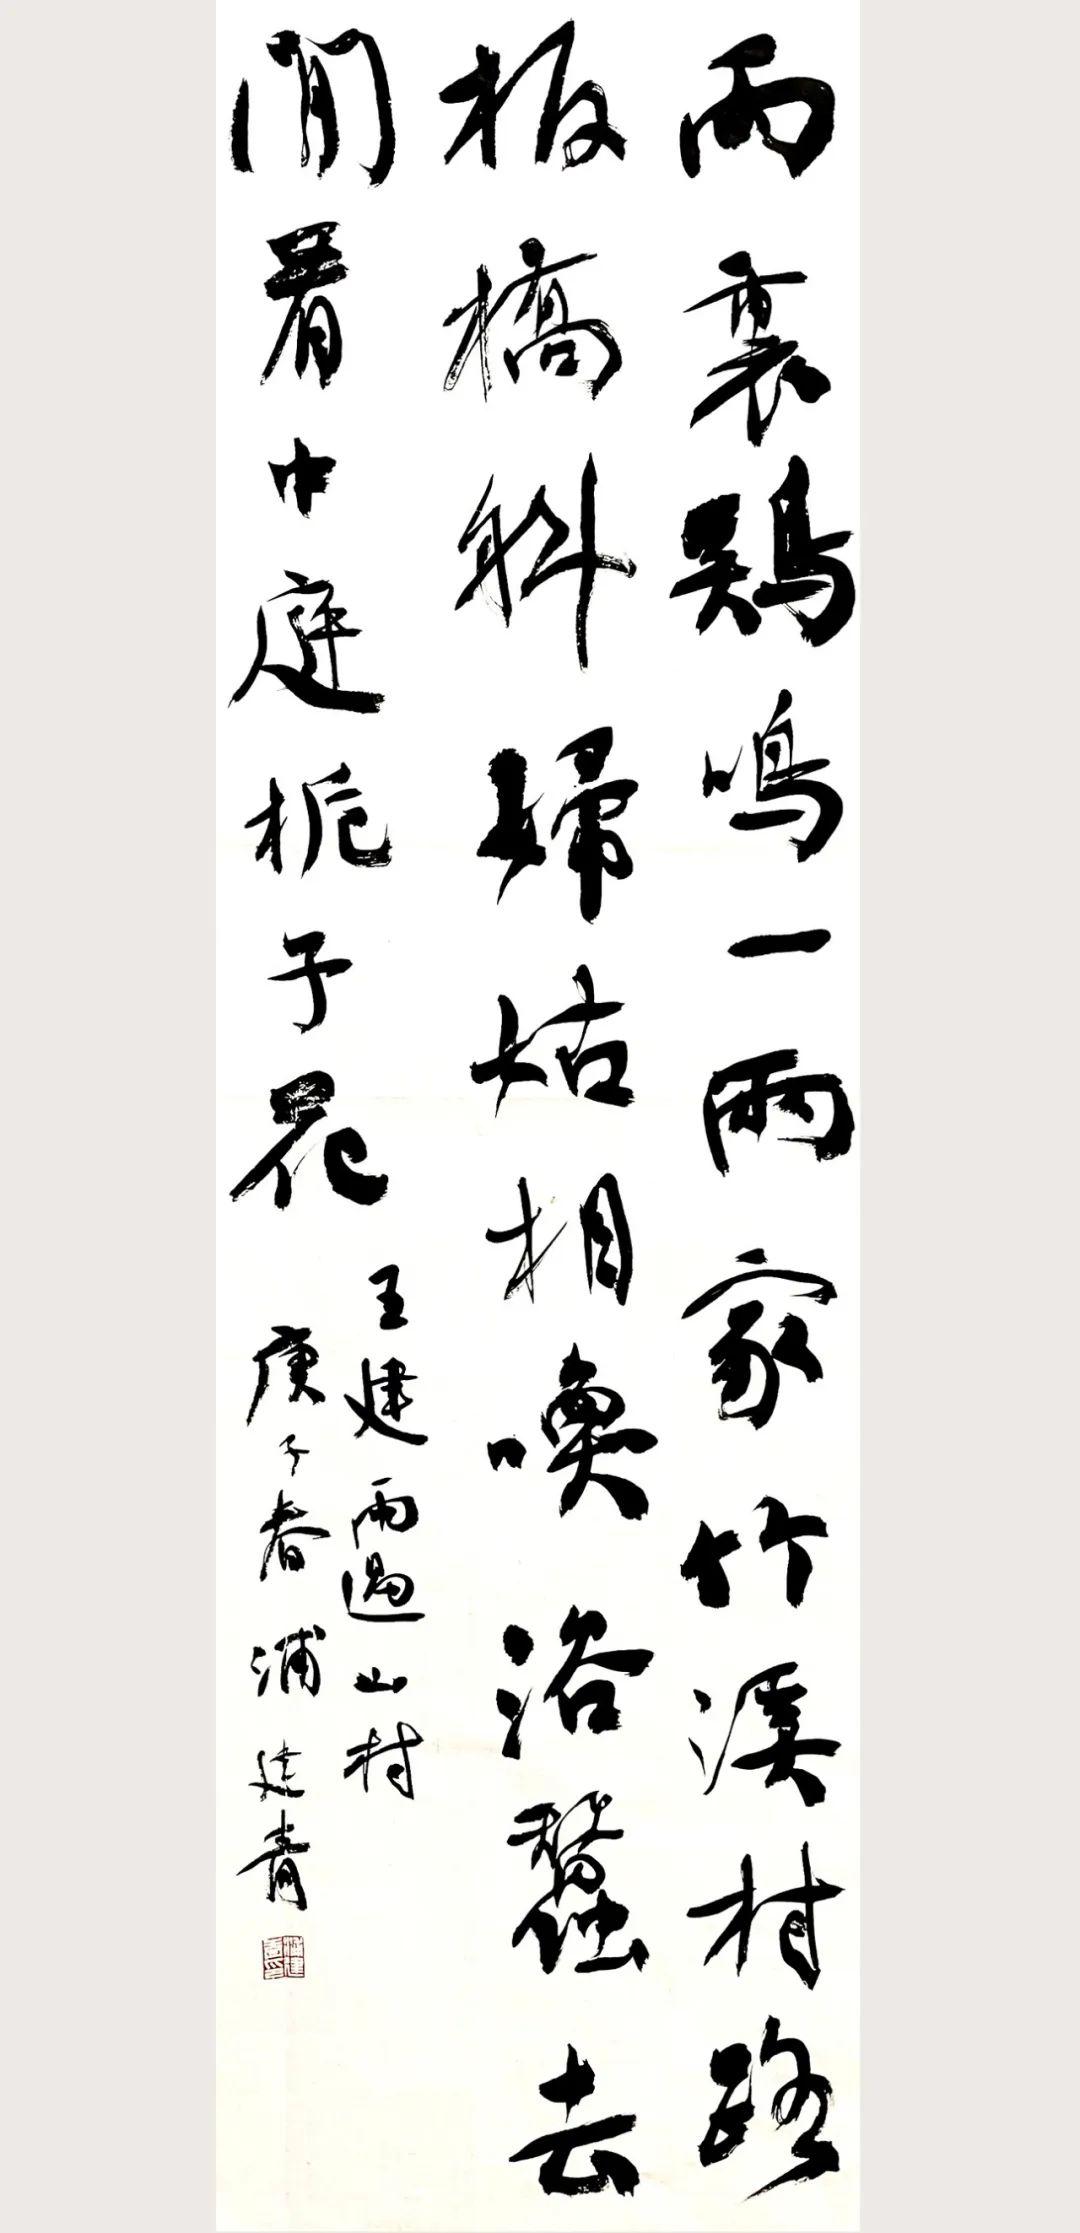 雨裏鷄鳴一兩家竹溪村路
板橋斜婦姑相喚浴蠶去
閒看中庭栀子花
王建雨過山村
庚子春浦建青